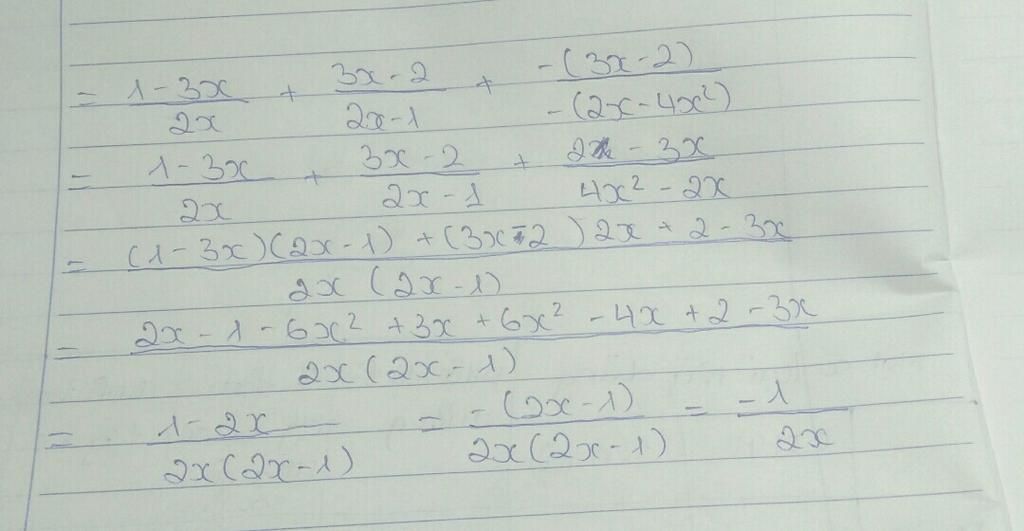 = (1 - 3x)/(2x) + (3x - 2)/(2x - 1) + (-(3x - 2))/(-(2x - 4x²))
= (1 - 3x)/(2x) + (3x - 2)/(2x - 1) + (2 - 3x)/(4x² - 2x)
= ((1 - 3x)(2x - 1) + (3x - 2)2x + 2 - 3x)/(2x(2x - 1))
= (2x - 1 - 6x² + 3x + 6x² - 4x + 2 - 3x)/(2x(2x - 1))
= (1 - 2x)/(2x(2x - 1)) = (-(2x - 1))/(2x(2x - 1)) = (-1)/(2x)